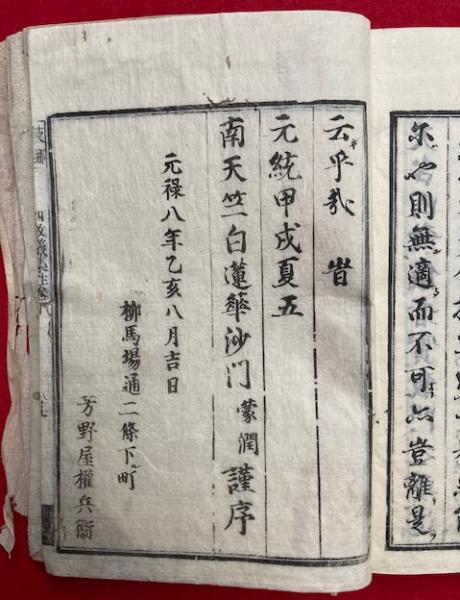 則無適而不可 豈離是
云乎哉 旹
元統甲戌夏五
南天竺白蓮華沙門蒙潤謹序
元祿八年乙亥八月吉日
柳馬場通二條下町
芳野屋權兵衞